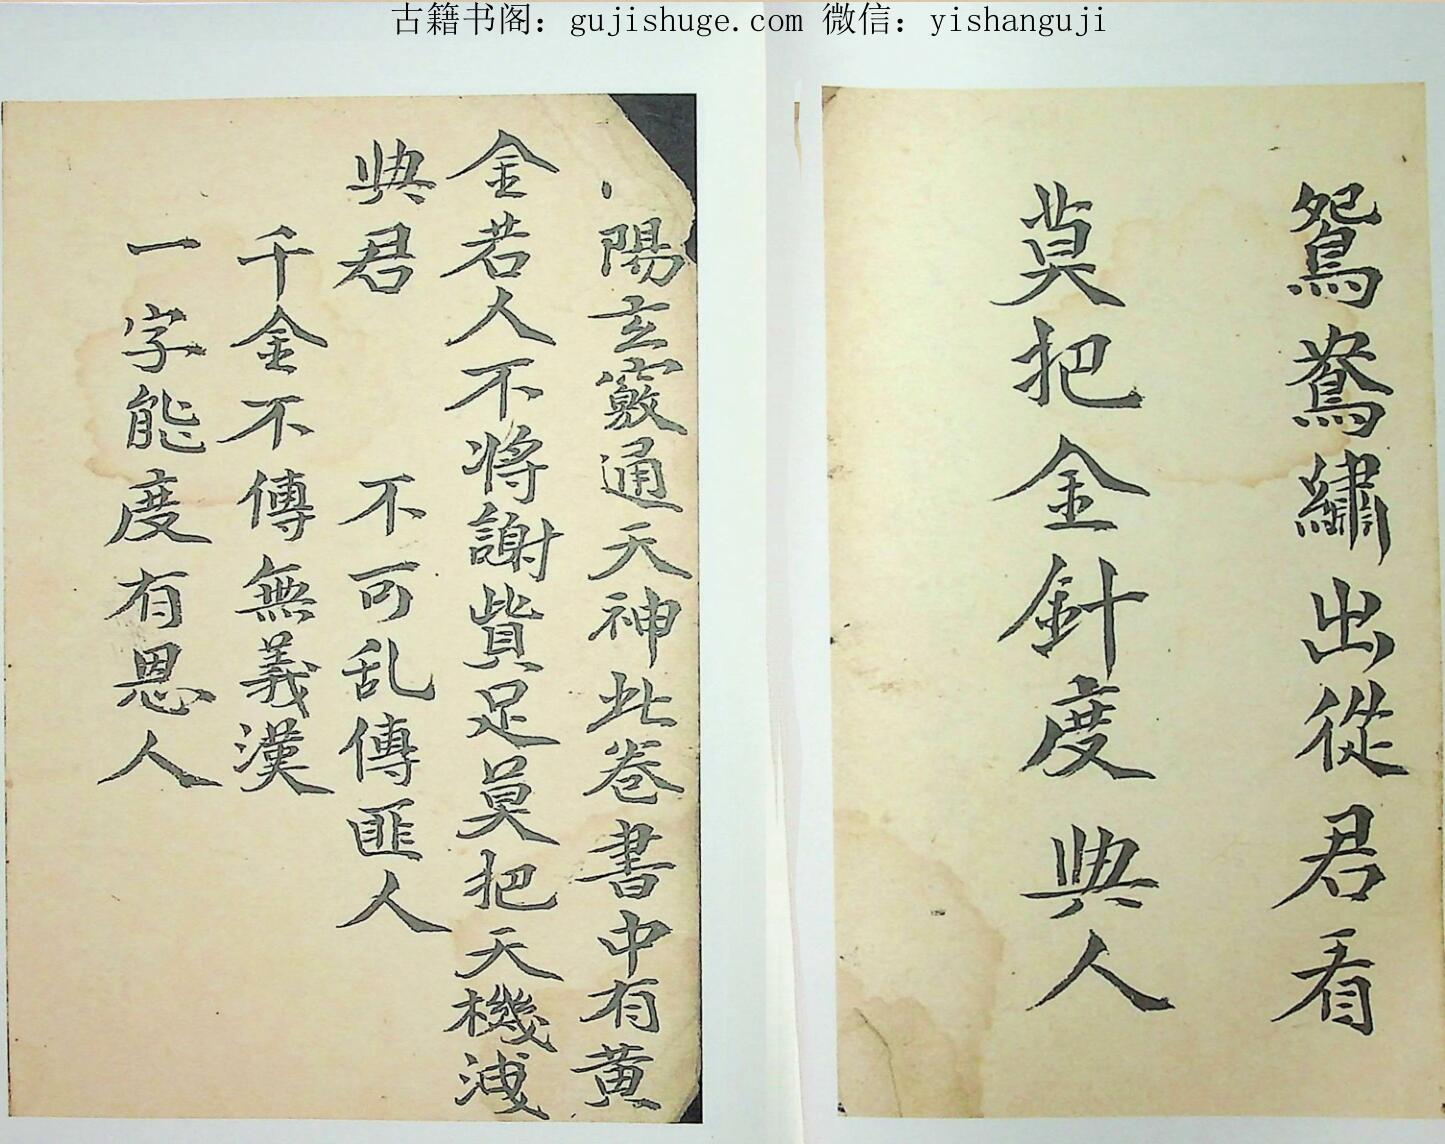 古籍书阁：gujishuge.com 微信：yishanguji
鴛鴦繡出從君看
莫把金針度與人
陽玄竅通天神此卷書中有黄
金若人不將謝貲足莫把天機洩
與君 不可乱傳匪人
千金不傳無義漢
一字能度有恩人